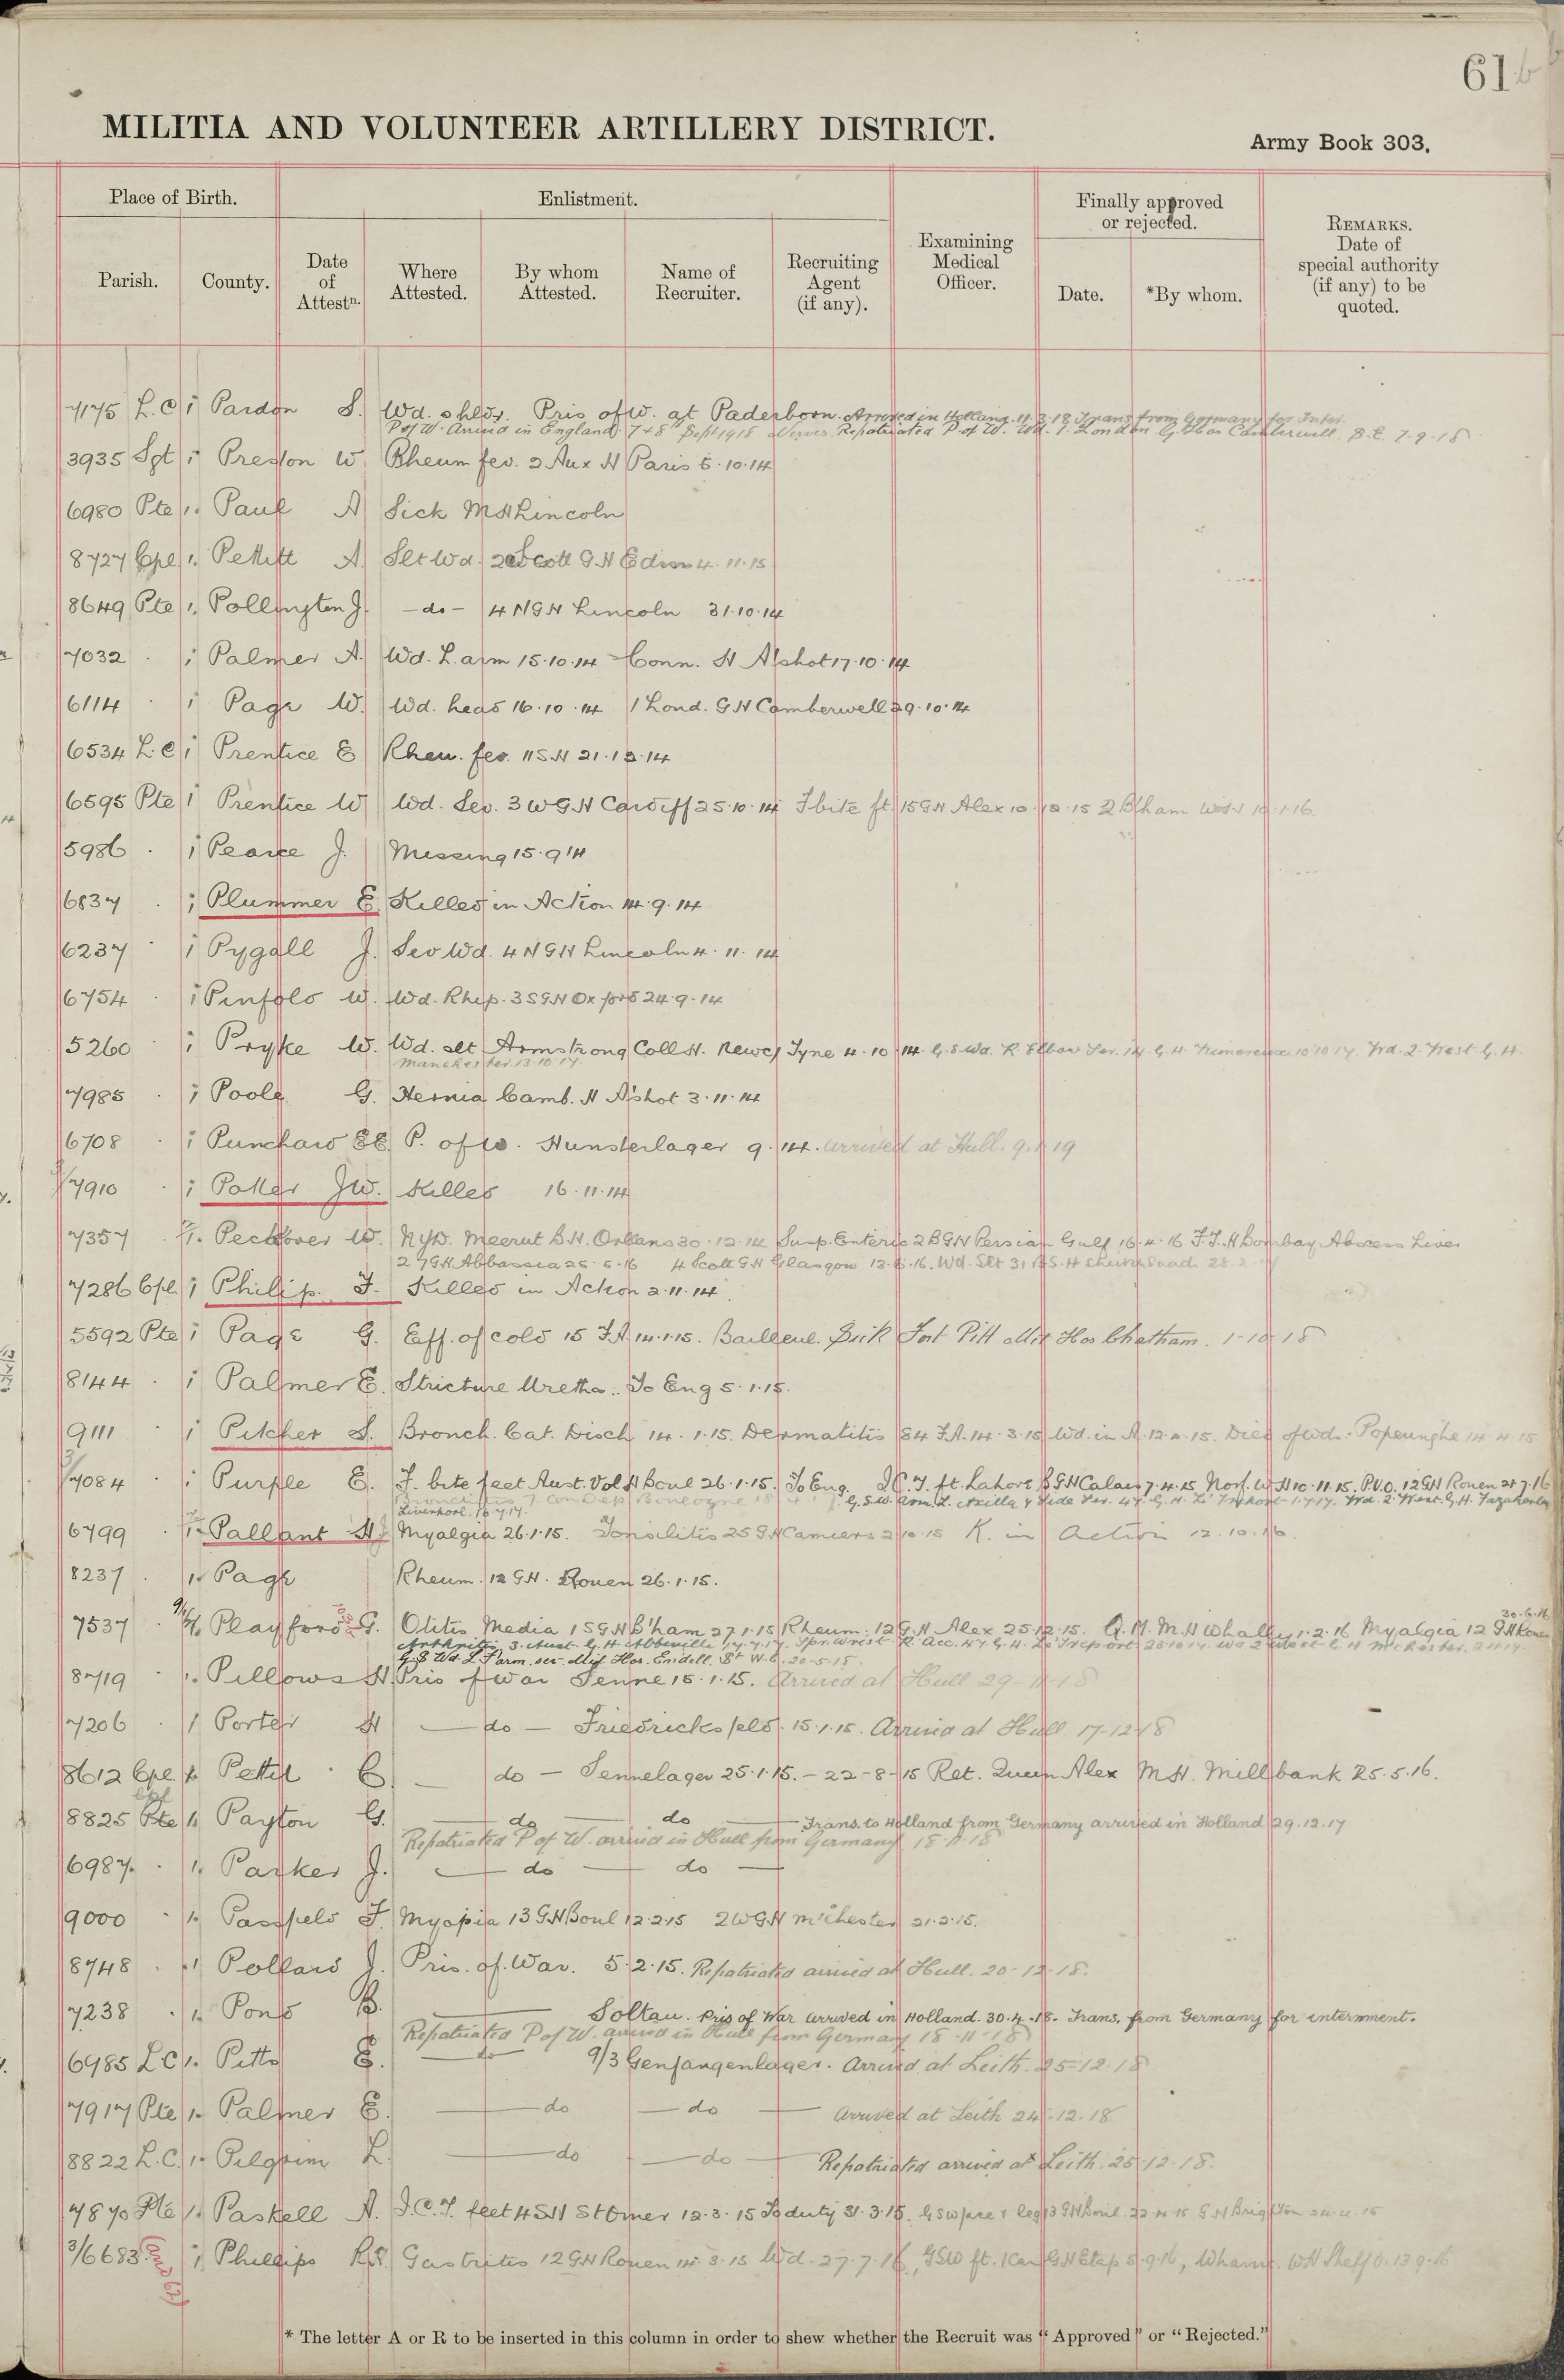 61
MILITIA AND VOLUNTEER ARTILLERY DISTRICT.
Army Book 303.
Place of Birth.
Enlistment.
Finally approved
or rejected.
Parish.
County.
Date
of
Attestn.
Where
Attested.
By whom
Attested.
Name of
Recruiter.
Recruiting
Agent
(if any).
Examining
Medical
Officer.
Date.
*By whom.
REMARKS.
Date of
special authority
(if any) to be
quoted.
7175 L.C 1 Pardon S. Wd. shldr. Pris of W. at Paderborn. Arrived in Holland 11.3.18 Trans from Germany for Inter.
P of W. Arrived in England 7+8th Sept 1918 Repatriated P of W. Wd. 1. London G. Hos Camberwell S.E. 7-9-18
3935 Sgt 1 Preston W Rheum fev. 2 Aux H Paris 5.10.14
6980 Pte 1. Paul A Sick MH Lincoln
8727 Cpl 1. Pettitt A Slt Wd. 2 Scott G.H Edinr 4.11.15
8649 Pte 1. Pollington J. - do - 4 NGH Lincoln 31.10.14
7032 . 1 Palmer A. Wd. L. arm 15.10.14 Conn. H A'shot 17.10.14
6114 . 1 Page W. Wd. head 16.10.14 1 Lond. G H Camberwell 29.10.14
6534 L.C 1 Prentice E Rheu. fev. 11 S.H 21.12.14
6595 Pte 1 Prentice W Wd. Sev. 3 WGH Cardiff 25.10.14 F bite ft 15 GH Alex 10.12.15 2 B'ham 10.1.16.
5986 . 1 Pearce J. Missing 15.9.14
6837 . 1 Plummer E. Killed in Action 14.9.14
6237 . 1 Pygall J. Sev Wd. 4 NGH Lincoln 4.11.14
6754 . 1 Pinfold W. Wd. R hip. 3 SGH Oxford 24.9.14
5260 . 1 Pryke W. Wd. slt Armstrong Coll H. Newc/Tyne 4.10.14 G.S Wd. R. Elbow Sev. 14 G.H. Wimereux 10.10.17. Trd. 2. West. G.H.
Manchester. 13.10.17.
7985 . 1 Poole G. Hernia Camb. H A'shot 3.11.14
6708 . 1 Punchard P. of W. Munsterlager 9.14. arrived at Hull. 9.1.19
3/7910 . 1 Potter J.W. Killed 16.11.14
7357 . 1. Peckover W. NYD. Meerut B.H. Orleans 30.12.14 Susp. Enteric 2 BGH Persian Gulf 16.4.16 F.J.H Bombay Abscess Liver
27 GH Abbassia 25.5.16 4 Scott GH Glasgow 12.6.16. Wd. Slt 31 S.H Sheikh Saad 28.2
7286 Cpl 1 Philip. F. Killed in Action 2.11.14
5592 Pte 1 Page G. Eff. of cold 15 F.A 14.1.15. Bailleul. Sick Fort Pitt Mil Hos Chatham. 1-10-18
8144 . 1 Palmer E. Stricture Uretha. To Eng 5.1.15.
9111 1 Pitcher S. Bronch. Cat. Disch 14.1.15. Dermatitis 84 F.A. 14.3.15 Wd. in A. 12.4.15. Died of wds. Poperinghe 14.4.15
3/7084 . 1 Purple E. F. bite feet Aust. Vol H Boul 26.1.15. To Eng. I.C.T. ft. Lahore B.GH Calais 7.4.15 Norf. W H 10.11.15. P.U.O. 12 GH Rouen 27.7.16
Bronchitis 7 Con Dep Boulogne G.S.W. arm. L. Axilla & Side Sev. 47. G.H. Le Treport. 1.7.17. Trd. 2. West. G.H. Fazakerley
Liverpool. 16.7.17.
6799 1. Pallant H.J Myalgia 26.1.15. Tonsilitis 25 GH Camiers 2.10.15 K. in Action 12.10.16.
8237 . 1. Page Rheum. 12 GH. Rouen 26.1.15.
7537 . Playford G. Otitis Media 1 SGH B'ham 27.1.15 Rheum. 12 G.H Alex 25.12.15. Q.M.M.H Whalley 1.2.16 Myalgia 12 GH Rouen
30.6.16
Arthritis 3. Aust. G.H Abbeville 17.7.17. Spr. Wrist R Acc. 47 G.H. Le Treport 25.10.17. Wd 2 West G H McHester.
G.S Wd. L. F'arm. sev. Mil. Hos. Endell. St W.C. 20-5-18.
8719 1. Pillows H. Pris of War Senne 15.1.15. Arrived at Hull 29-11-18
7206 . 1 Porter H - do - Friedricksfeld. 15.1.15. Arrived at Hull 17-12-18
8612 Cpl 1. Pettit C. - do - Sennelager 25.1.15. - 22-8-15 Ret. Queen Alex M.H. Millbank 25.5.16.
8825 Pte 1. Payton G. do do Trans. to Holland from Germany arrived in Holland 29.12.17
Repatriated P of W. arrived in Hull from Germany 18-11-18
6987. . 1. Parker J. do do
9000 . 1. Passfield F. Myopia 13 GH Boul 12.2.15 2 WGH M'chester 21.2.15.
8748 . 1 Pollard J. Pris. of. War. 5.2.15. Repatriated arrived at Hull. 20-12-18.
7238 . 1. Pond B. Soltau. Pris of War arrived in Holland. 30.4.18. Trans. from Germany for internment.
Repatriated P of W. arrived in Hull from Germany 18-11-18
6985 L.C 1. Pitts E. do 9/3 Genfangenlager. Arrived at Leith. 25-12-18
7917 Pte 1. Palmer E. do do Arrived at Leith 24.12.18
8822 L.C. 1. Pilgrim L. do do Repatriated arrived at Leith. 25.12.18.
7870 Pte 1. Paskell A. I.C.T. feet 4 SH St Omer 12.3.15 To duty 31.3.15. G.S.W face & leg 13 GH Boul. 22.4.15 G H Brighton 24.4.15
3/6683 1 Phillips R.S. Gastrites 12 GH Rouen 14.3.15 Wd. 27.7.16, GSW ft. 1 Can GH Etap 5.9.16, Wharnc. WH Sheff d. 13.9.16
* The letter A or R to be inserted in this column in order to shew whether the Recruit was "Approved" or "Rejected."